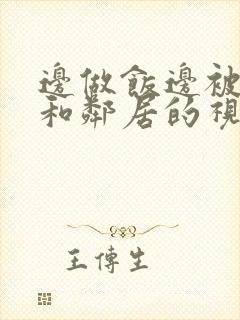 邊做飯邊被
和鄰居的視
王傳生